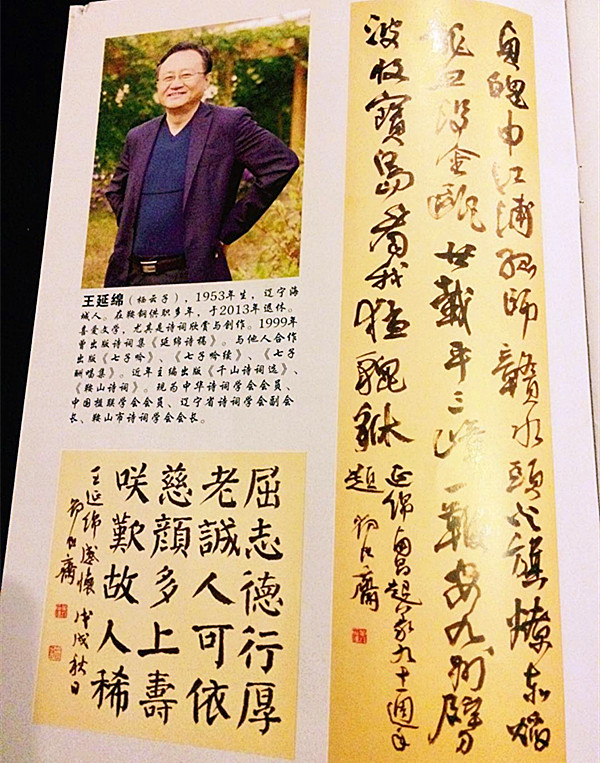 王延绵（栖云子），1953年生，辽宁海
城人。在鞍钢供职多年，于2013年退休。
喜爱文学，尤其是诗词欣赏与创作。1999年
曾出版诗词集《延绵诗稿》。与他人合作
出版《七子吟》、《七子吟续》、《七子
酬唱集》。近年主编出版《千山诗词选》、
《鞍山诗词》。现为中华诗词学会会员、
中国楹联学会会员、辽宁省诗词学会副会
长、鞍山市诗词学会会长。
屈志德行厚
老誠人可依
慈顏多上壽
咲歎故人稀
王延绵感懷 戊戌秋日
申江浦 师贛水頭 旗燎赤焰
金甌廿載平三 一鞭安九州
波收寶島看我猛貔貅
延绵南昌起義九十一週年
題